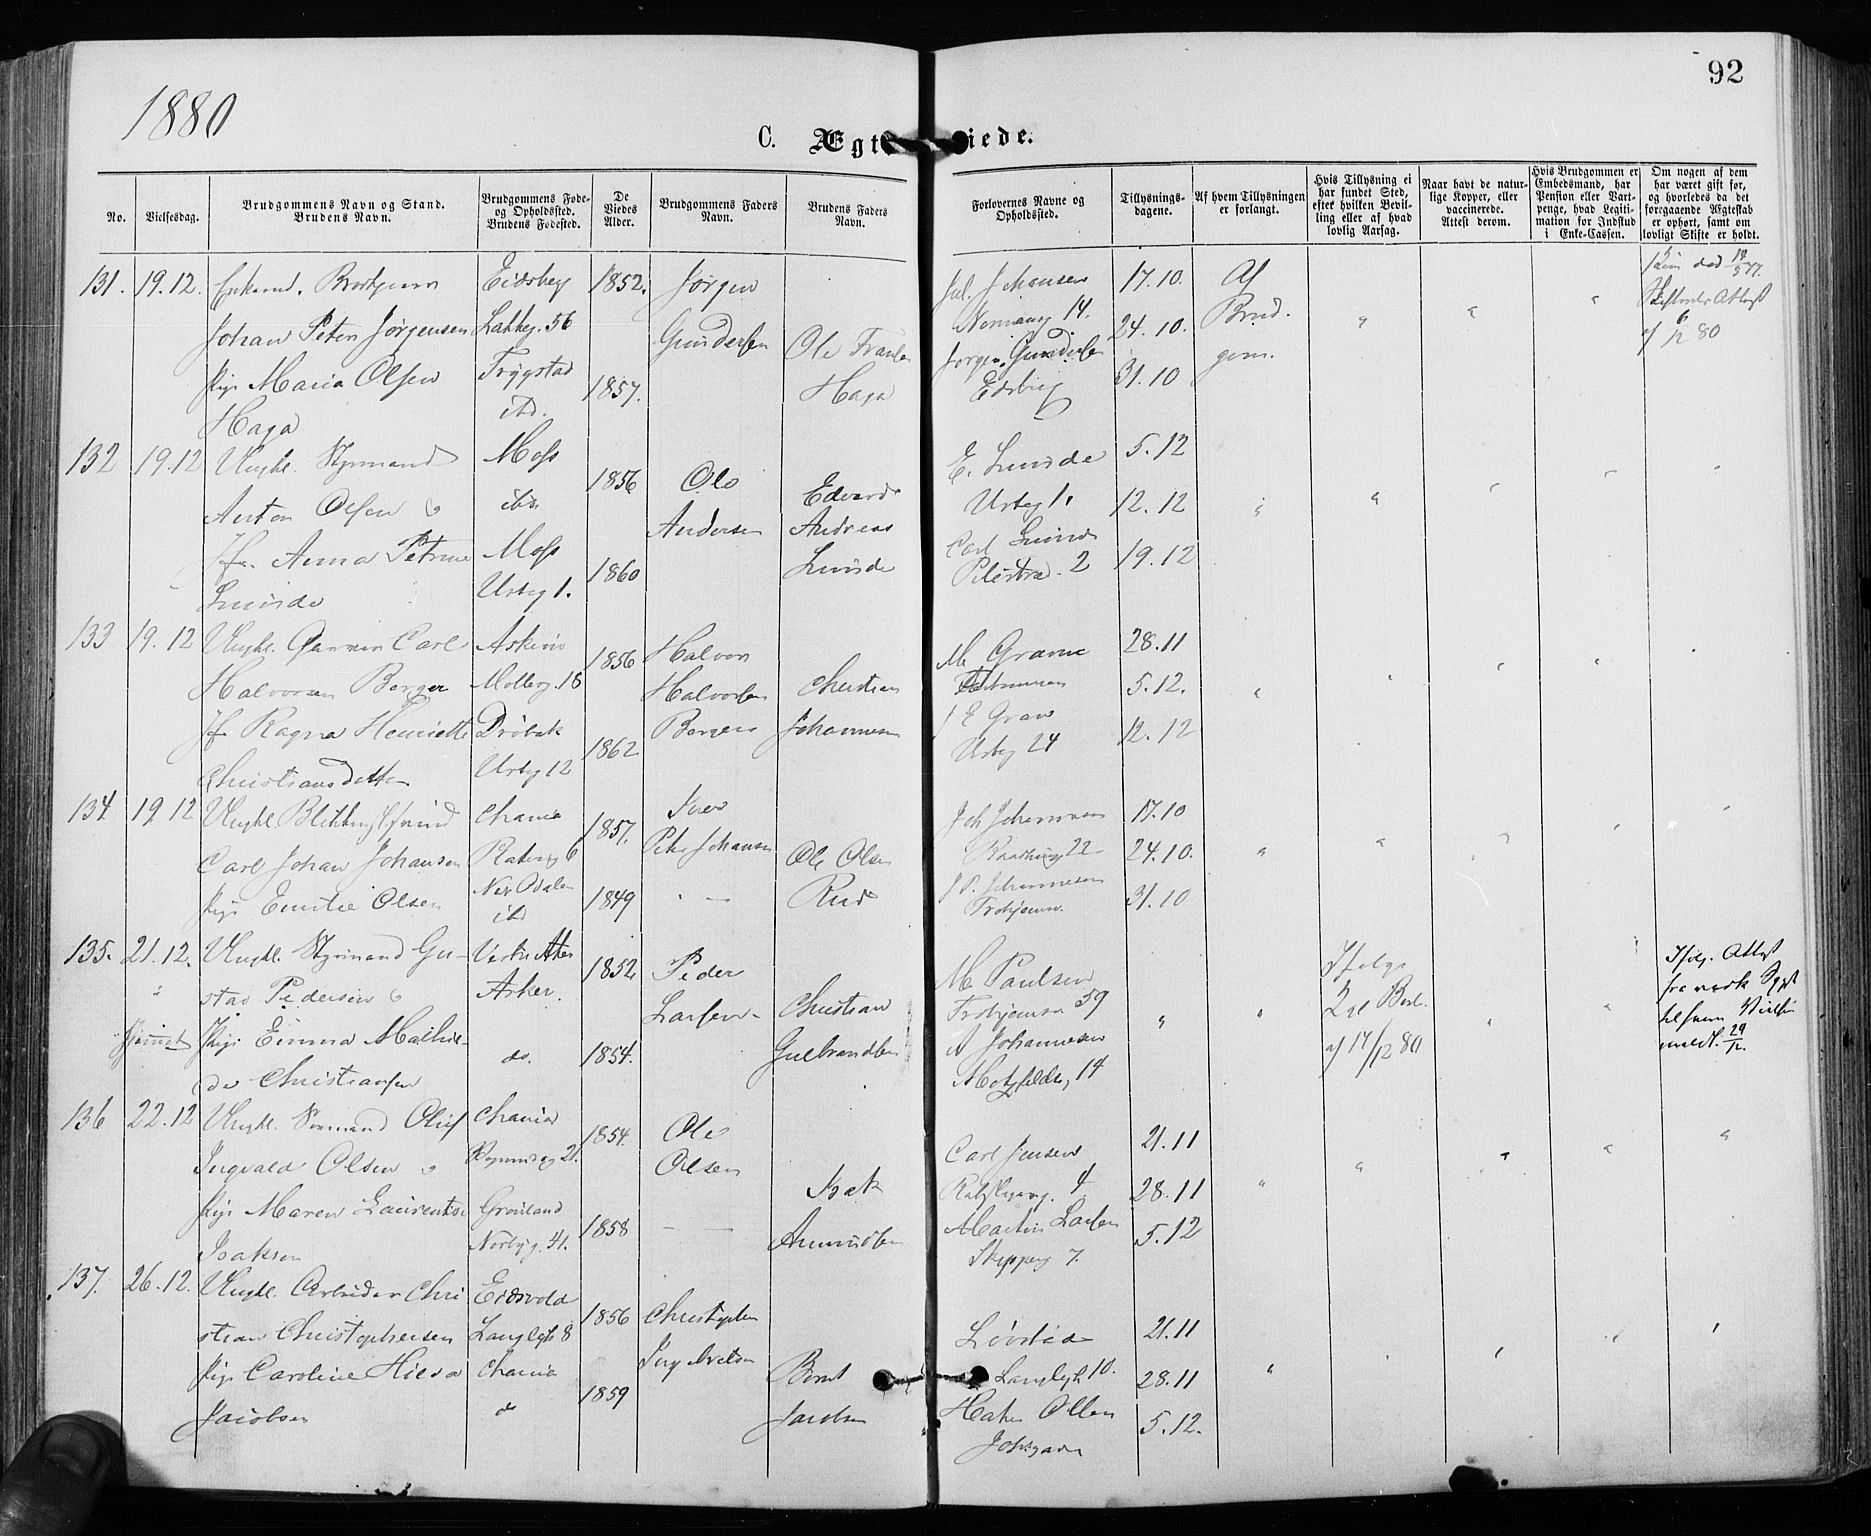 1880
92
C. Ægt iede.
No.
Vielsesdag.
Brudgommens Navn og Stand.
Brudens Navn.
Brudgommens Føde-
og Opholdssted.
Brudens Fødested.
De
Viedes
Alder.
Brudgommens Faders
Navn.
Brudens Faders
Navn.
Forlovernes Navne og
Opholdssted.
Tillysnings-
dagene.
Af hvem Tillysningen
er forlangt.
Hvis Tillysning ei
har fundet Sted,
efter hvilken Bevil-
ling eller af hvad
lovlig Aarsag.
Naar havt de natur-
lige Kopper, eller
vaccinerede.
Attest derom.
Hvis Brudgommen er
Embedsmand, har
Pension eller Vart-
penge, hvad Legiti-
mation for Indskud
i Enke-Cassen.
Om nogen af dem
har været gift før,
og hvorledes da det
foregaaende Ægteskab
er ophørt, samt om
lovligt Skifte er holdt.
131. 19.12. Enkemd.
Johan Peter Jørgensen
Pige Maria Olsen
Haga
Eidsberg
Lakkeg. 56
Trygstad
ibd.
1852.
1857.
Jørgen
Gundersen
Ole
Haga
Jul. Johansen
14.
Jørgen Gundersen
Eidsberg
17.10.
24.10.
31.10
Af
Brud-
gom.
død
6/12 80
132 19.12 Ungkl. Styrmand
Anton Olsen &
Jfr. Anna Petrine
Lunde
Moss
ibd.
Moss
Urteg 1.
1856
1860
Ole
Andersen
Edvard
Andreas
Lunde
E. Lunde
Urteg 1.
Carl Lunde
Pilestræd. 2
5.12
12.12
19.12
133 19.12 Ungkl. Garver Carl
Halvorsen Berger
Jfr Ragna Henriette
Christiansdatter
Askim
Møllerg. 18
Drøbak
Urteg 12
1856
1862
Halvor
Halvorsen
Berger
Christian
Johannesen
M.
J E Gran
Urteg 24
28.11
5.12.
12.12
134 19.12 Ungkl. Blikkensl.svend
Carl Johan Johansen
Pige Emilie Olsen
Chania
6
Odalen
ibd
1857.
1849
Peter Johansen
Ole Olsen
Rud
Joh Johannesen
22
J. P. Johannesen
17.10
24.10.
31.10
135. 21.12. Ungkl. Styrmand Gu-
stav Pedersen &
Pige Emma Mathil-
de Christiansen
Vestre Aker
Asker.
do.
1852
1854.
Peder
Larsen
Christian
Gulbrandsen
M Paulsen
59
A Johannesen
Motzfeldtg 14
Ifølge
Kgl Bevl.
af 17/12 80
Ifølg. Attest
fra
29/12.
136 22.12 Ungkl. Sømand Oluf
Ingvald Olsen &
Pige Maren Laurentse
Isaksen
Chania
21.
Grønland
Norbyg. 41.
1854.
1858
Ole
Olsen
Isak
Amundsen
Carl Jensen
4
Martin Larsen
Skipperg 7.
21.11
28.11
5.12
137. 26.12. Ungkl. Arbeider Chri
stian Christophersen
Pige Caroline Hilda
Jacobsen
Eidsvold
Langlgt 8
Chania
do
1856
1859
Christopher
Ingebretsen
Bernt
Jacobsen
Løvstad
Langlgt 10.
Olsen
21.11
28.11
5.12.